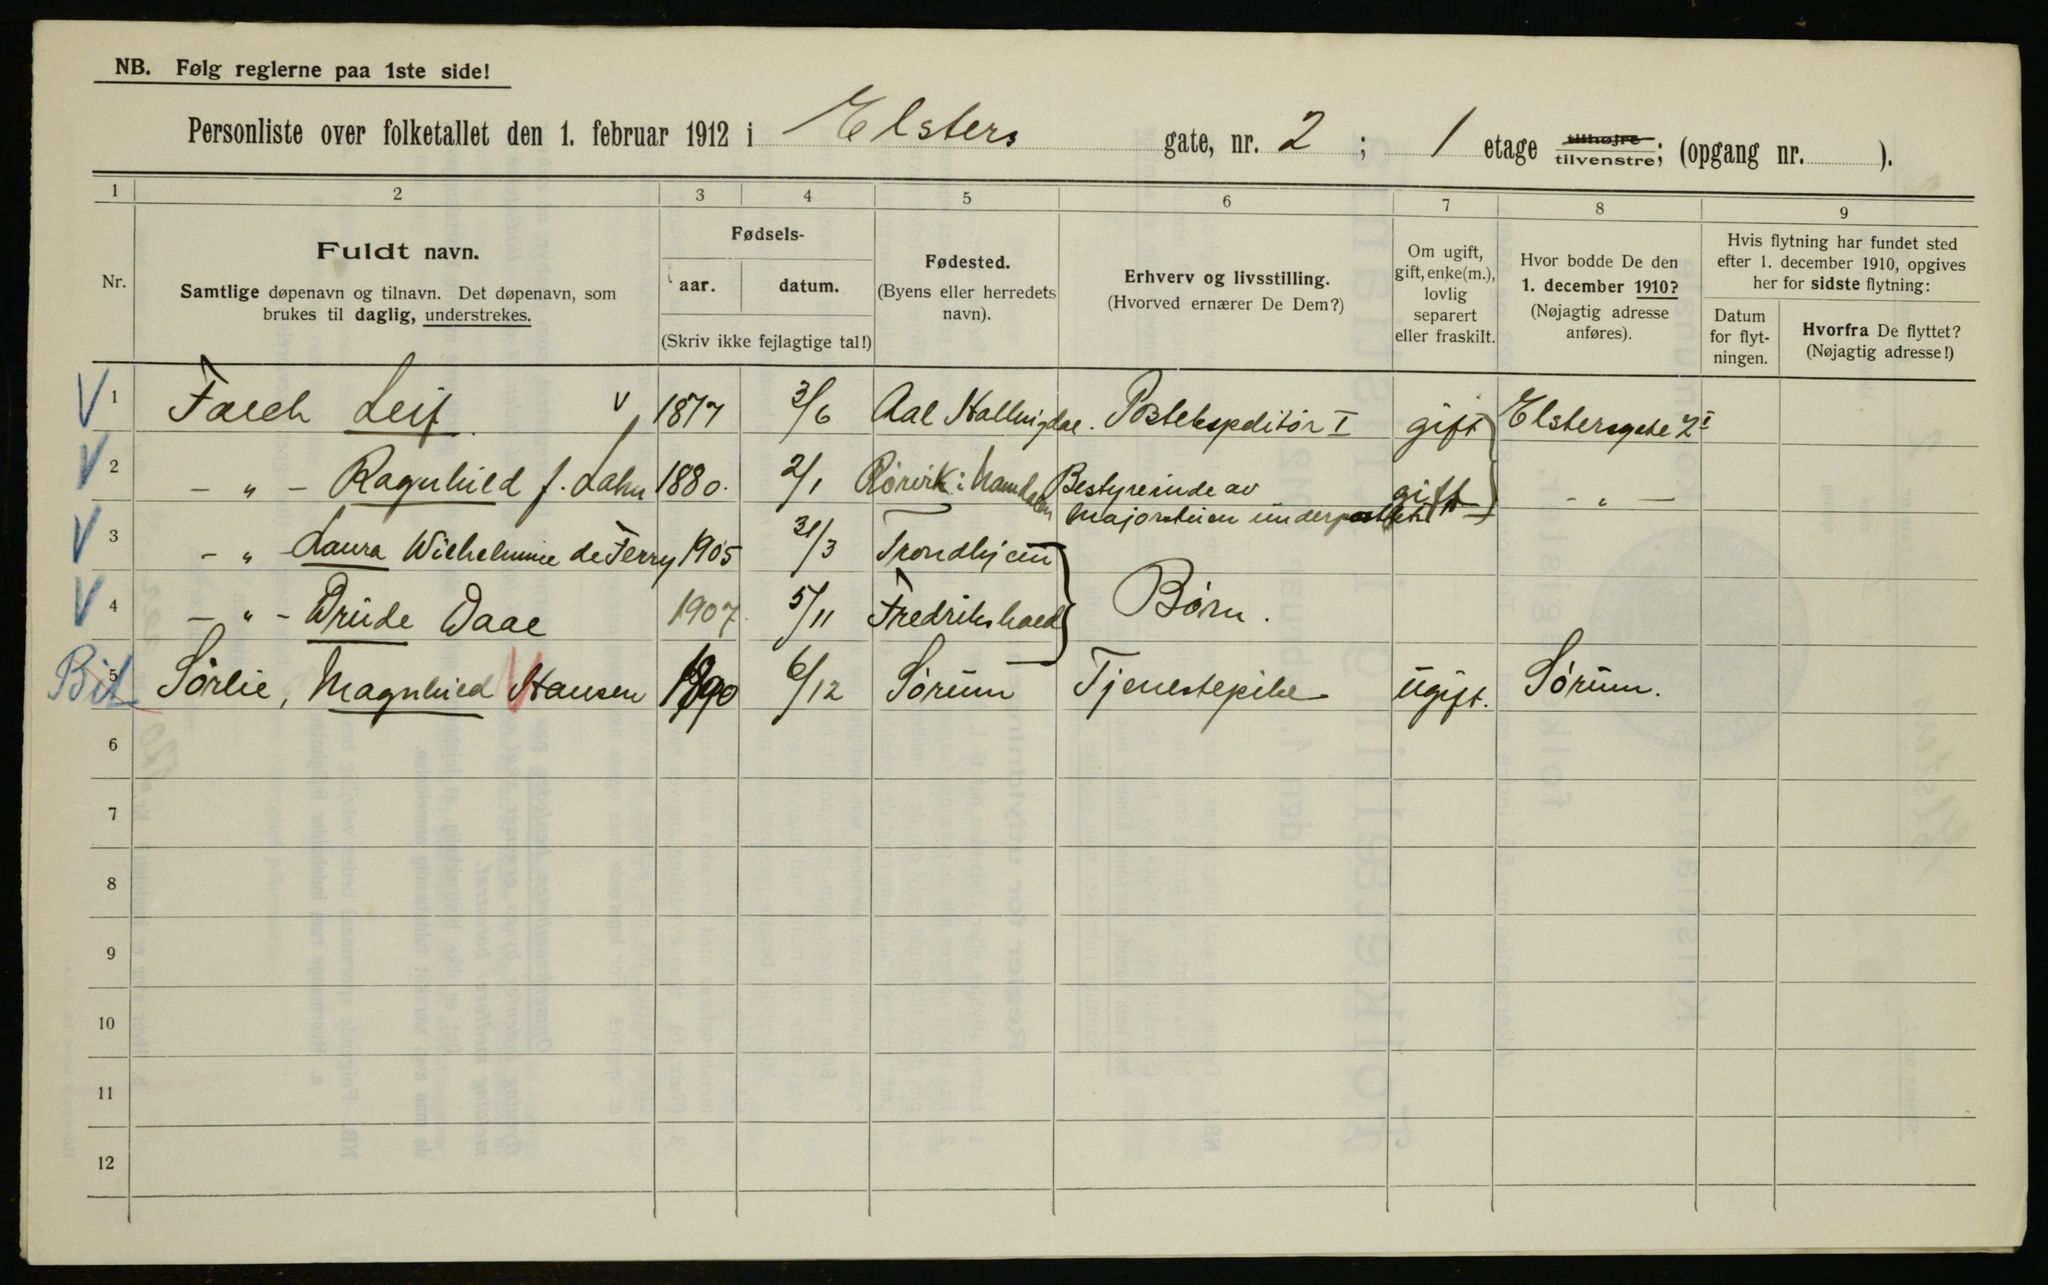 NB. Følg reglerne paa 1ste side!
Personliste over folketallet den 1. februar 1912 i Elsters gate, nr. 2 ; 1 etage tilhøjre tilvenstre; (opgang nr. ).
1 2 3 4 5 6 7 8 9
Nr.
Fuldt navn.
Samtlige døpenavn og tilnavn. Det døpenavn, som
brukes til daglig, understrekes.
Fødsels-
aar. datum.
(Skriv ikke fejlagtige tal!)
Fødested.
(Byens eller herredets
navn).
Erhverv og livsstilling.
(Hvorved ernærer De Dem?)
Om ugift,
gift, enke(m.),
lovlig
separert
eller fraskilt.
Hvor bodde De den
1. december 1910?
(Nøjagtig adresse
anføres).
Hvis flytning har fundet sted
efter 1. december 1910, opgives
her for sidste flytning:
Datum
for flyt-
ningen.
Hvorfra De flyttet?
(Nøjagtig adresse!)
V 1 Falch Leif V 1877 3/6 Aal Hallingdal. Postekspeditør I gift Elstersgate 2 I
V 2 — " — Ragnhild f. Lahn 1880. 2/1 Rørvik i Namdalen Bestyrerinde av
Majorstuen underpostkt gift — " —
V 3 — " Laura Wilhelmine de Ferry 1905 31/3 Trondhjem
V 4 — " — Drude Daae 1907 5/11 Fredrikshald Børn.
Bit 5 Sørlie, Magnhild Hansen 1890 6/12 Sørum Tjenestepike ugift. Sørum.
6
7
8
9
10
11
12